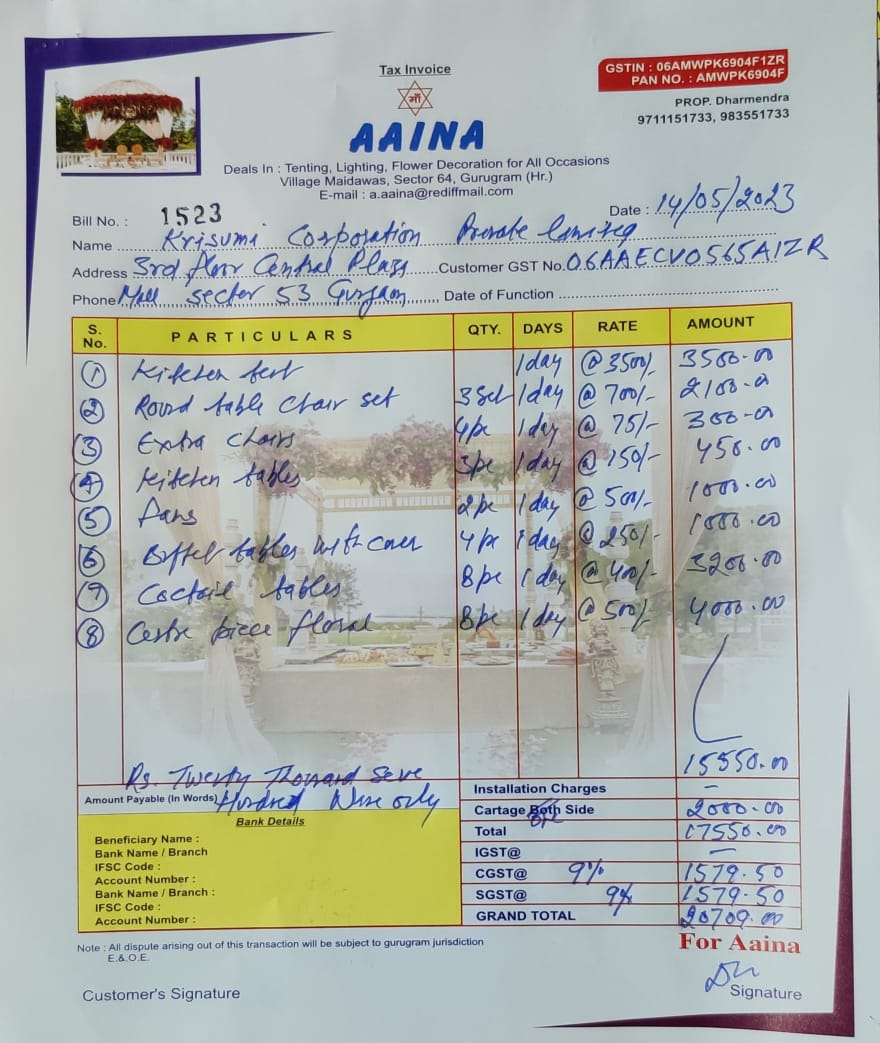 Tax Invoice
GSTIN : 06AMWPK6904F1ZR
PAN NO. : AMWPK6904F
माँ
PROP. Dharmendra
9711151733, 983551733
AAINA
Deals In : Tenting, Lighting, Flower Decoration for All Occasions
Village Maidawas, Sector 64, Gurugram (Hr.)
E-mail : a.aaina@rediffmail.com
Bill No. : 1523 Date : 14/05/2023
Name Krisumi Corporation Private Limited
Address 3rd floor Central Plaza Customer GST No. 06AAECV0565A1ZR
Phone Mall sector 53 Gurgaon Date of Function
S. No. PARTICULARS QTY. DAYS RATE AMOUNT
1 Kitchen tent 1day @ 3500/- 3500.00
2 Round table chair set 3 Set 1day @ 700/- 2100.00
3 Extra chairs 4pc 1day @ 75/- 300.00
4 Kitchen tables 3pc 1day @ 150/- 450.00
5 fans 2pc 1day @ 500/- 1000.00
6 Buffet tables with cover 4pc 1day @ 250/- 1000.00
7 Coctail tables 8pc 1day @ 400/- 3200.00
8 Centre piece floral 8pc 1day @ 500/- 4000.00
15550.00
Rs. Twenty Thousand Seve
Amount Payable (In Words) Hundred Nine only
Installation Charges –
Cartage Both Side 2000.00
Total 17550.00
IGST@ –
CGST@ 9% 1579.50
SGST@ 9% 1579.50
GRAND TOTAL 20709.00
Bank Details
Beneficiary Name :
Bank Name / Branch
IFSC Code :
Account Number :
Bank Name / Branch :
IFSC Code :
Account Number :
For Aaina
Note : All dispute arising out of this transaction will be subject to gurugram jurisdiction
E.&.O.E.
Customer's Signature
Signature